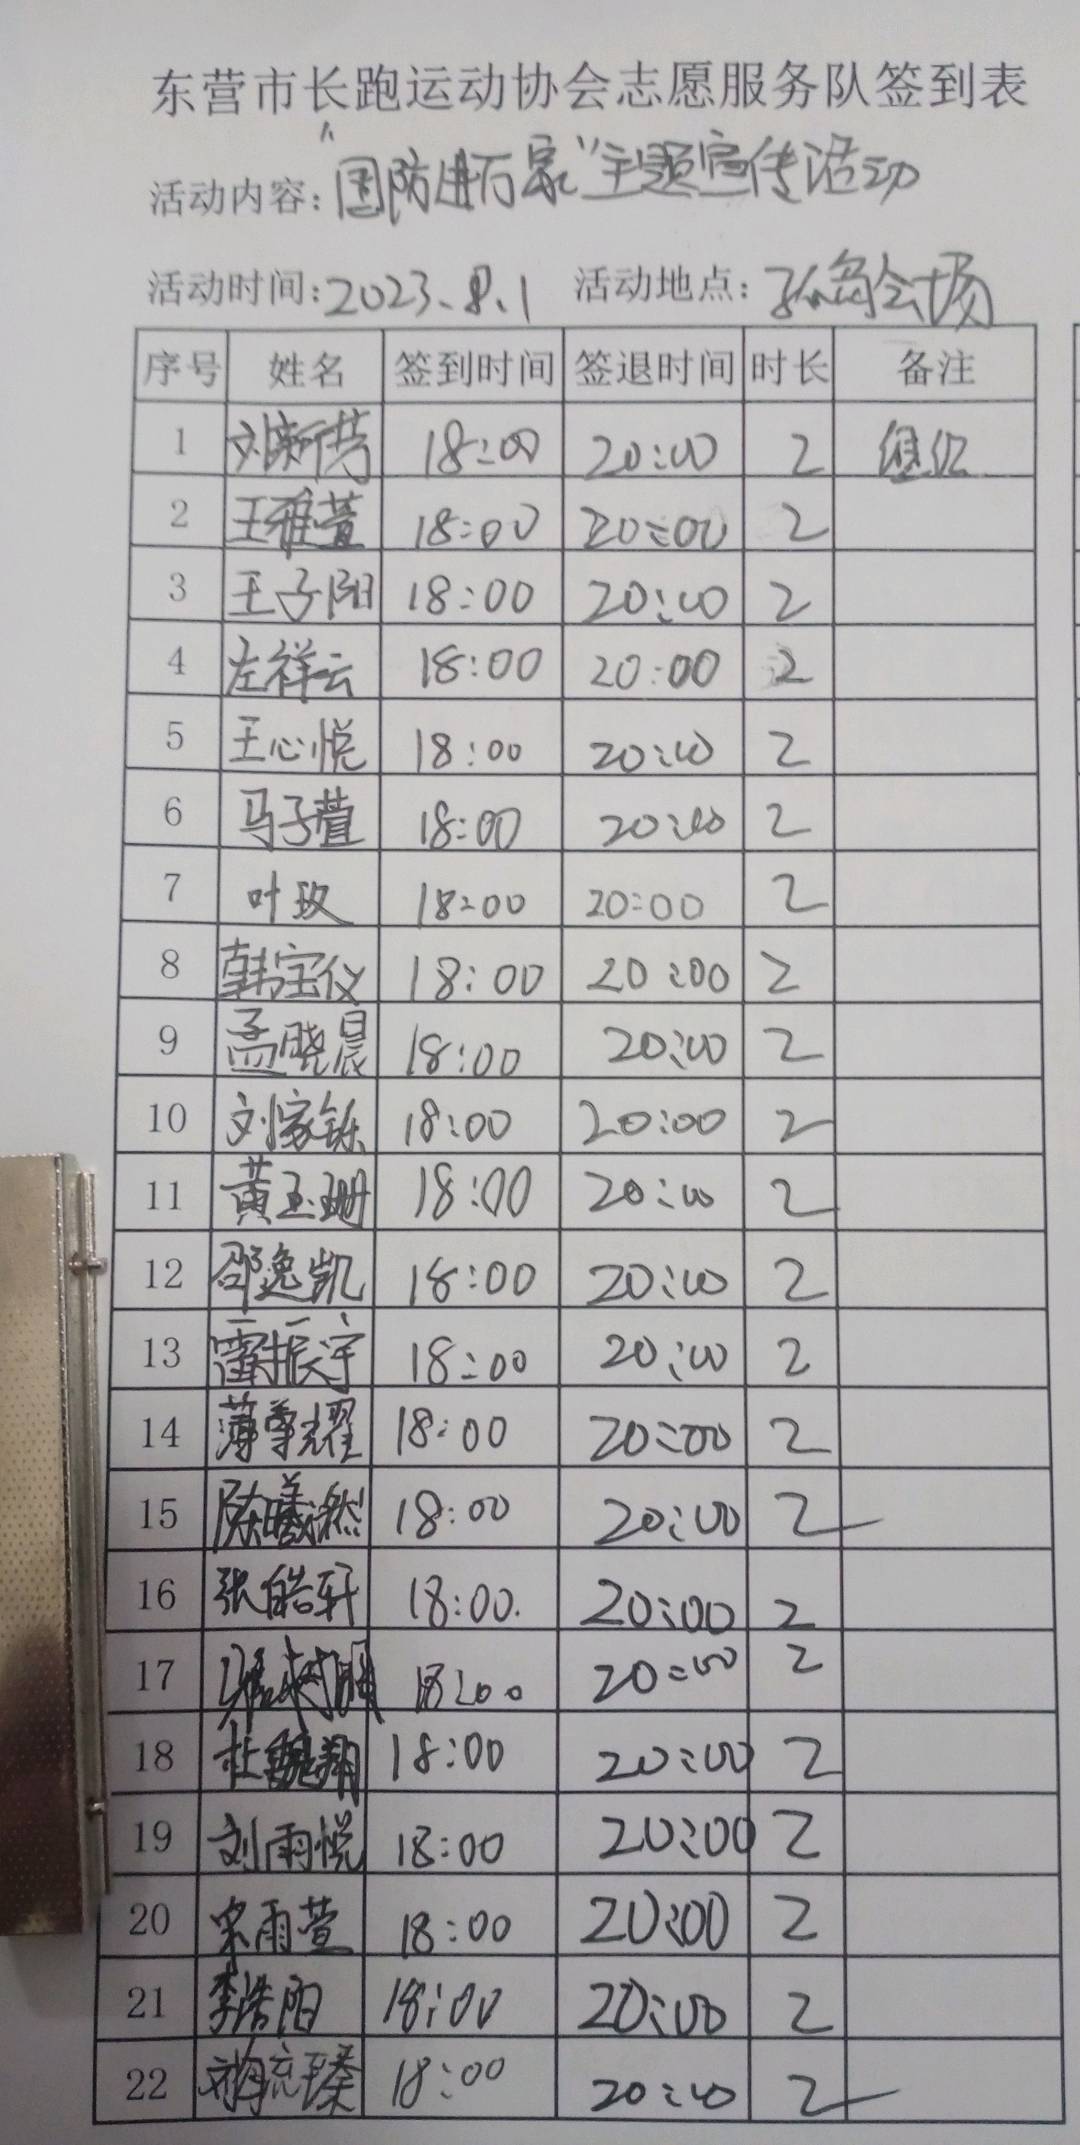 东营市长跑运动协会志愿服务队签到表
活动内容：“国防进万家”主题宣传活动
活动时间：2023.8.1 活动地点：孤岛会场
序号 姓名 签到时间 签退时间 时长 备注
1 刘新芳 18:00 20:00 2
2 王雅萱 18:00 20:00 2
3 王子阳 18:00 20:00 2
4 左祥云 18:00 20:00 2
5 王心悦 18:00 20:00 2
6 马子萱 18:00 20:00 2
7 叶玫 18:00 20:00 2
8 韩宝仪 18:00 20:00 2
9 孟晓晨 18:00 20:00 2
10 刘家铄 18:00 20:00 2
11 黄玉珊 18:00 20:00 2
12 邵逸凯 18:00 20:00 2
13 雷振宇 18:00 20:00 2
14 薄尊耀 18:00 20:00 2
15 陈曦然 18:00 20:00 2
16 张皓轩 18:00. 20:00 2
17 18:00 20:00 2
18 杜魏翔 18:00 20:00 2
19 刘雨悦 18:00 20:00 2
20 宋雨萱 18:00 20:00 2
21 李浩阳 18:00 20:00 2
22 18:00 20:00 2